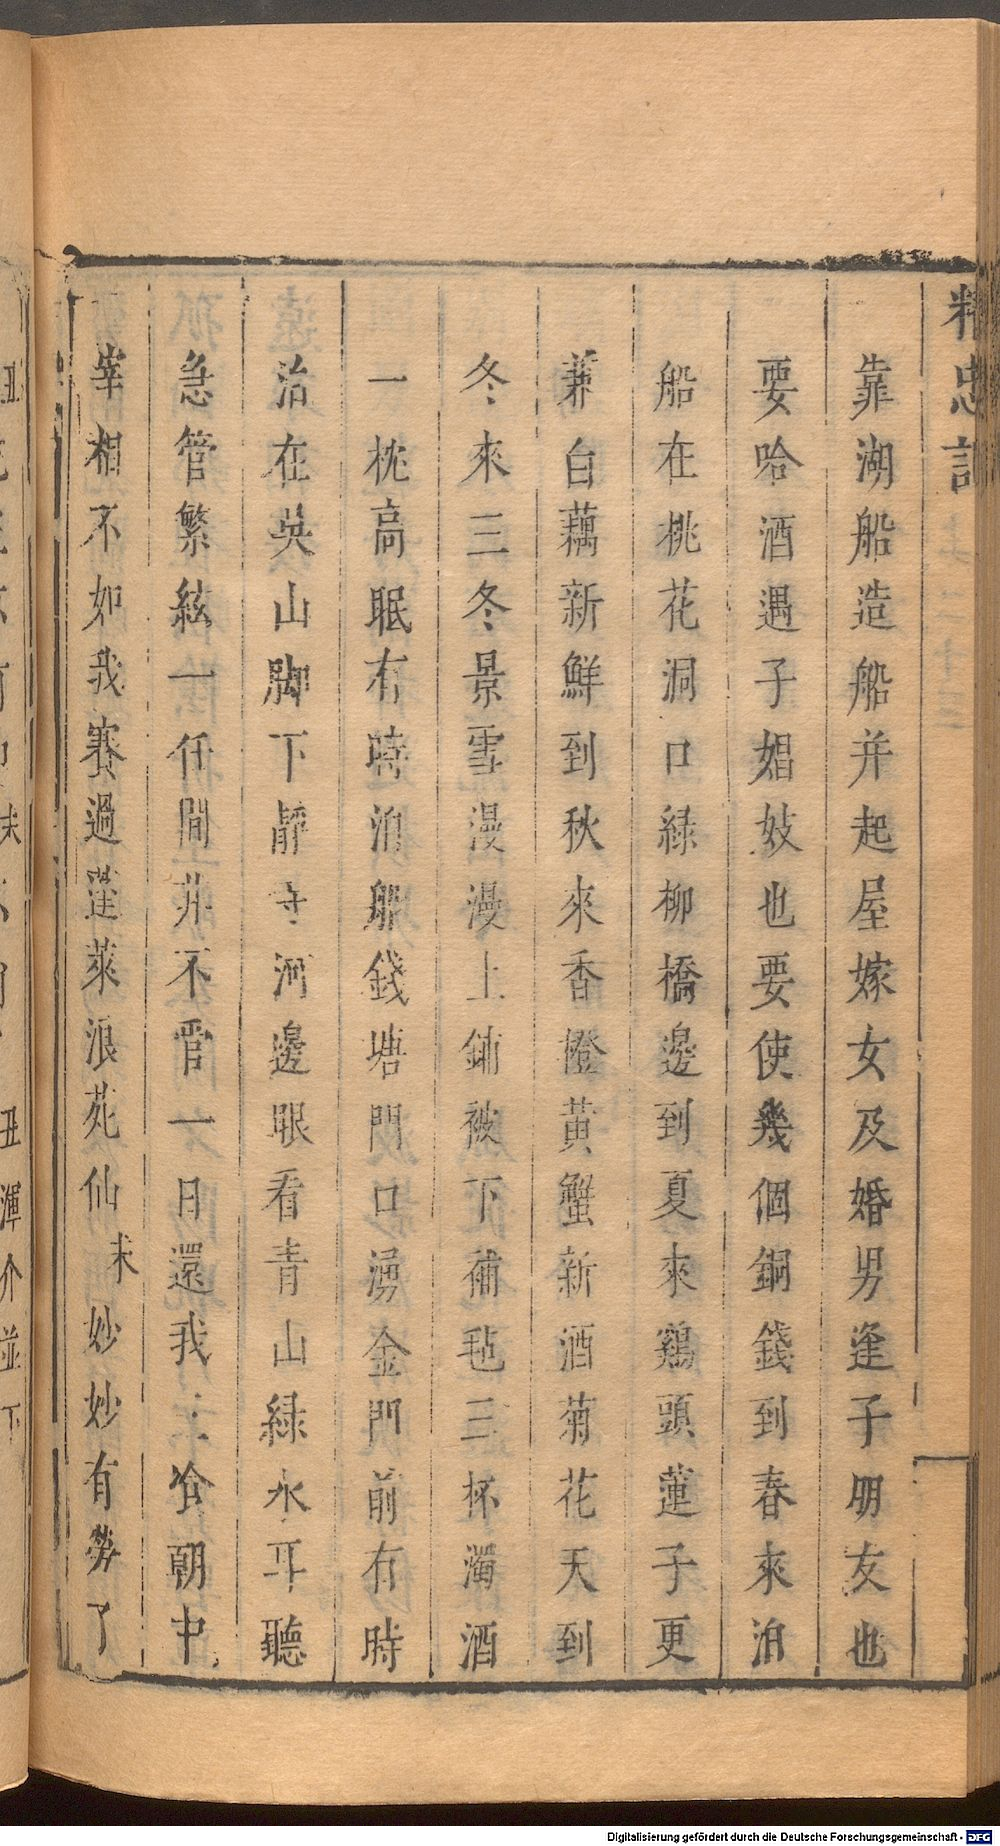 精忠記
靠湖船造船并起屋嫁女及婚男逢子朋友也
要哈酒遇子娼妓也要使幾個銅錢到春來泊
船在桃花洞口綠柳橋邊到夏來鷄頭蓮子更
蒹白藕新鮮到秋來香橙黃蟹新酒菊花天到
冬來三冬景雪漫漫上鋪被下補毡三杯濁酒
一枕高眠有時泊船錢塘門口湧金門前有時
泊在吳山脚下靜寺河邊眼看青山綠水耳聽
急管繁絃一任間非不管一日還我
朝中
宰相不如我賽過蓬萊浪苑仙末妙妙有勞了
Digitalisierung gefördert durch die Deutsche Forschungsgemeinschaft - DFG